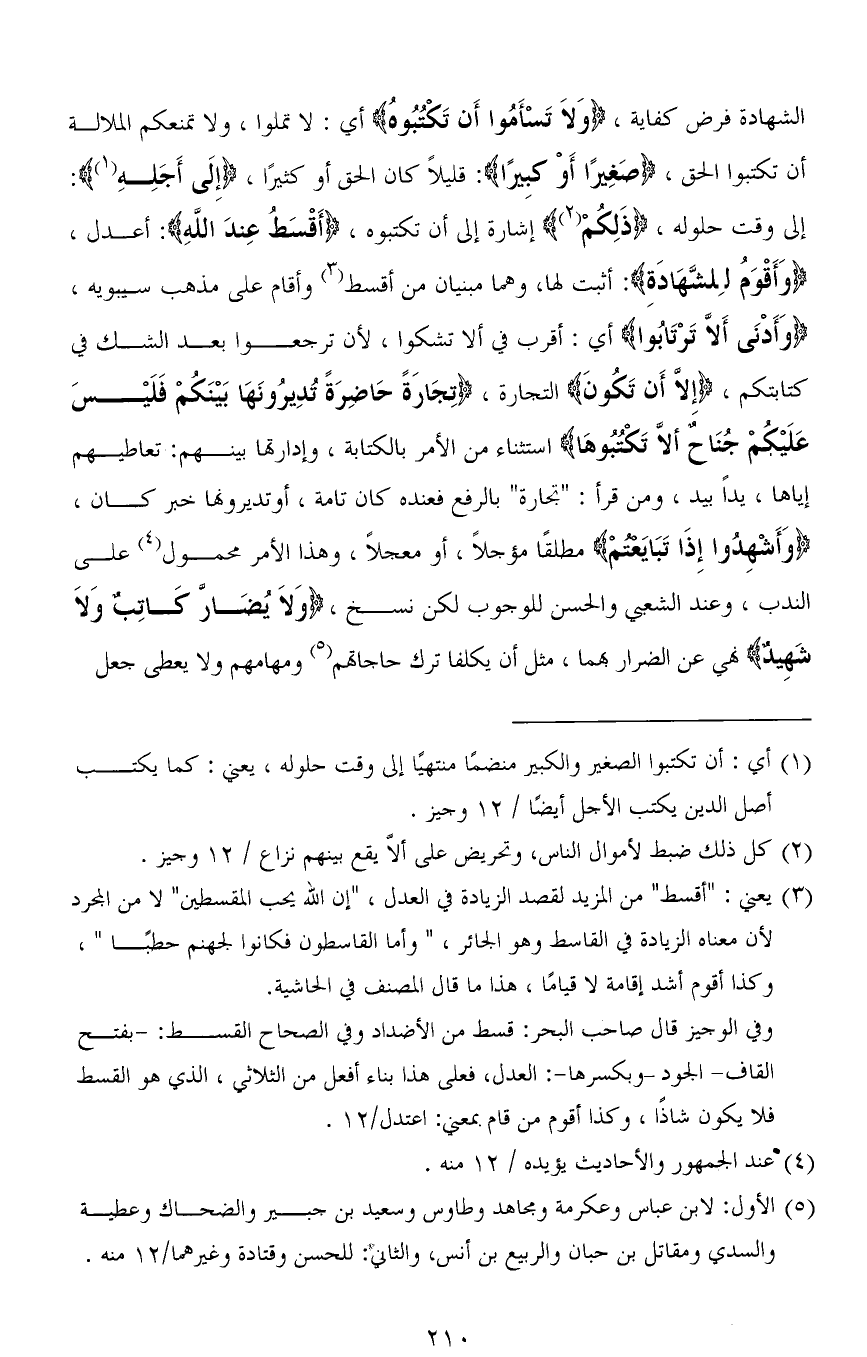 الشهادة فرض كفاية ، ﴿وَلاَ تَسْأَمُوا أَن تَكْتُبُوهُ﴾ أي : لا تملوا ، ولا تمنعكم الملالة
أن تكتبوا الحق ، ﴿صَغِيرًا أَوْ كَبِيرًا﴾: قليلاً كان الحق أو كثيرًا ، ﴿إِلَى أَجَلِهِ(١)﴾:
إلى وقت حلوله ، ﴿ذَلِكُمْ(٢)﴾ إشارة إلى أن تكتبوه ، ﴿أَقْسَطُ عِندَ اللَّهِ﴾: أعدل ،
﴿وَأَقْوَمُ لِلشَّهَادَةِ﴾: أثبت لها، وهما مبنيان من أقسط(٣) وأقام على مذهب سيبويه ،
﴿وَأَدْنَى أَلاَّ تَرْتَابُوا﴾ أي : أقرب في ألا تشكوا ، لأن ترجعوا بعد الشك في
كتابتكم ، ﴿إِلاَّ أَن تَكُونَ﴾ التجارة ، ﴿تِجَارَةً حَاضِرَةً تُدِيرُونَهَا بَيْنَكُمْ فَلَيْسَ
عَلَيْكُمْ جُنَاحٌ أَلاَّ تَكْتُبُوهَا﴾ استثناء من الأمر بالكتابة ، وإدارتها بينهم: تعاطيهم
إياها ، يداً بيد ، ومن قرأ : "تجارة" بالرفع فعنده كان تامة ، أوتديرونها خبر كان ،
﴿وَأَشْهِدُوا إِذَا تَبَايَعْتُمْ﴾ مطلقًا مؤجلاً ، أو معجلاً ، وهذا الأمر محمول(٤) على
الندب ، وعند الشعبي والحسن للوجوب لكن نسخ ، ﴿وَلاَ يُضَارَّ كَاتِبٌ وَلاَ
شَهِيدٌ﴾ نهي عن الضرار بهما ، مثل أن يكلفا ترك حاجاتهم(٥) ومهامهم ولا يعطى جعل
(١) أي : أن تكتبوا الصغير والكبير منضمًا منتهيًا إلى وقت حلوله ، يعني : كما يكتب
أصل الدين يكتب الأجل أيضًا / ١٢ وجيز .
(٢) كل ذلك ضبط لأموال الناس، وتحريض على ألاَّ يقع بينهم نزاع / ١٢ وجيز .
(٣) يعني : "أقسط" من المزيد لقصد الزيادة في العدل ، "إن الله يحب المقسطين" لا من المجرد
لأن معناه الزيادة في القاسط وهو الجائر ، " وأما القاسطون فكانوا لجهنم حطبًا " ،
وكذا أقوم أشد إقامة لا قيامًا ، هذا ما قال المصنف في الحاشية.
وفي الوجيز قال صاحب البحر: قسط من الأضداد وفي الصحاح القسط: -بفتح
القاف- الجود -وبكسرها-: العدل، فعلى هذا بناء أفعل من الثلاثي ، الذي هو القسط
فلا يكون شاذًا ، وكذا أقوم من قام بمعني: اعتدل/١٢ .
(٤) عند الجمهور والأحاديث يؤيده / ١٢ منه .
(٥) الأول: لابن عباس وعكرمة ومجاهد وطاوس وسعيد بن جبير والضحاك وعطية
والسدي ومقاتل بن حبان والربيع بن أنس، والثاني: للحسن وقتادة وغيرهما/١٢ منه .
٢١٠